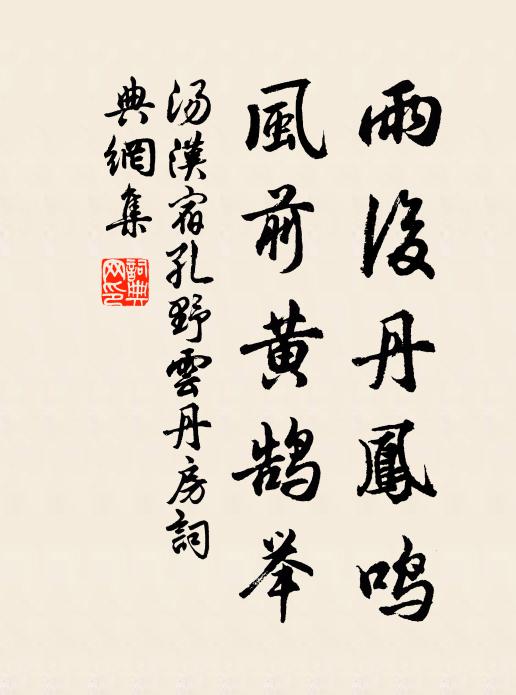 雨後丹鳳鳴
風前黄鹄举
汤漢宿孔野雲丹房詞
典網集
詞典
网印